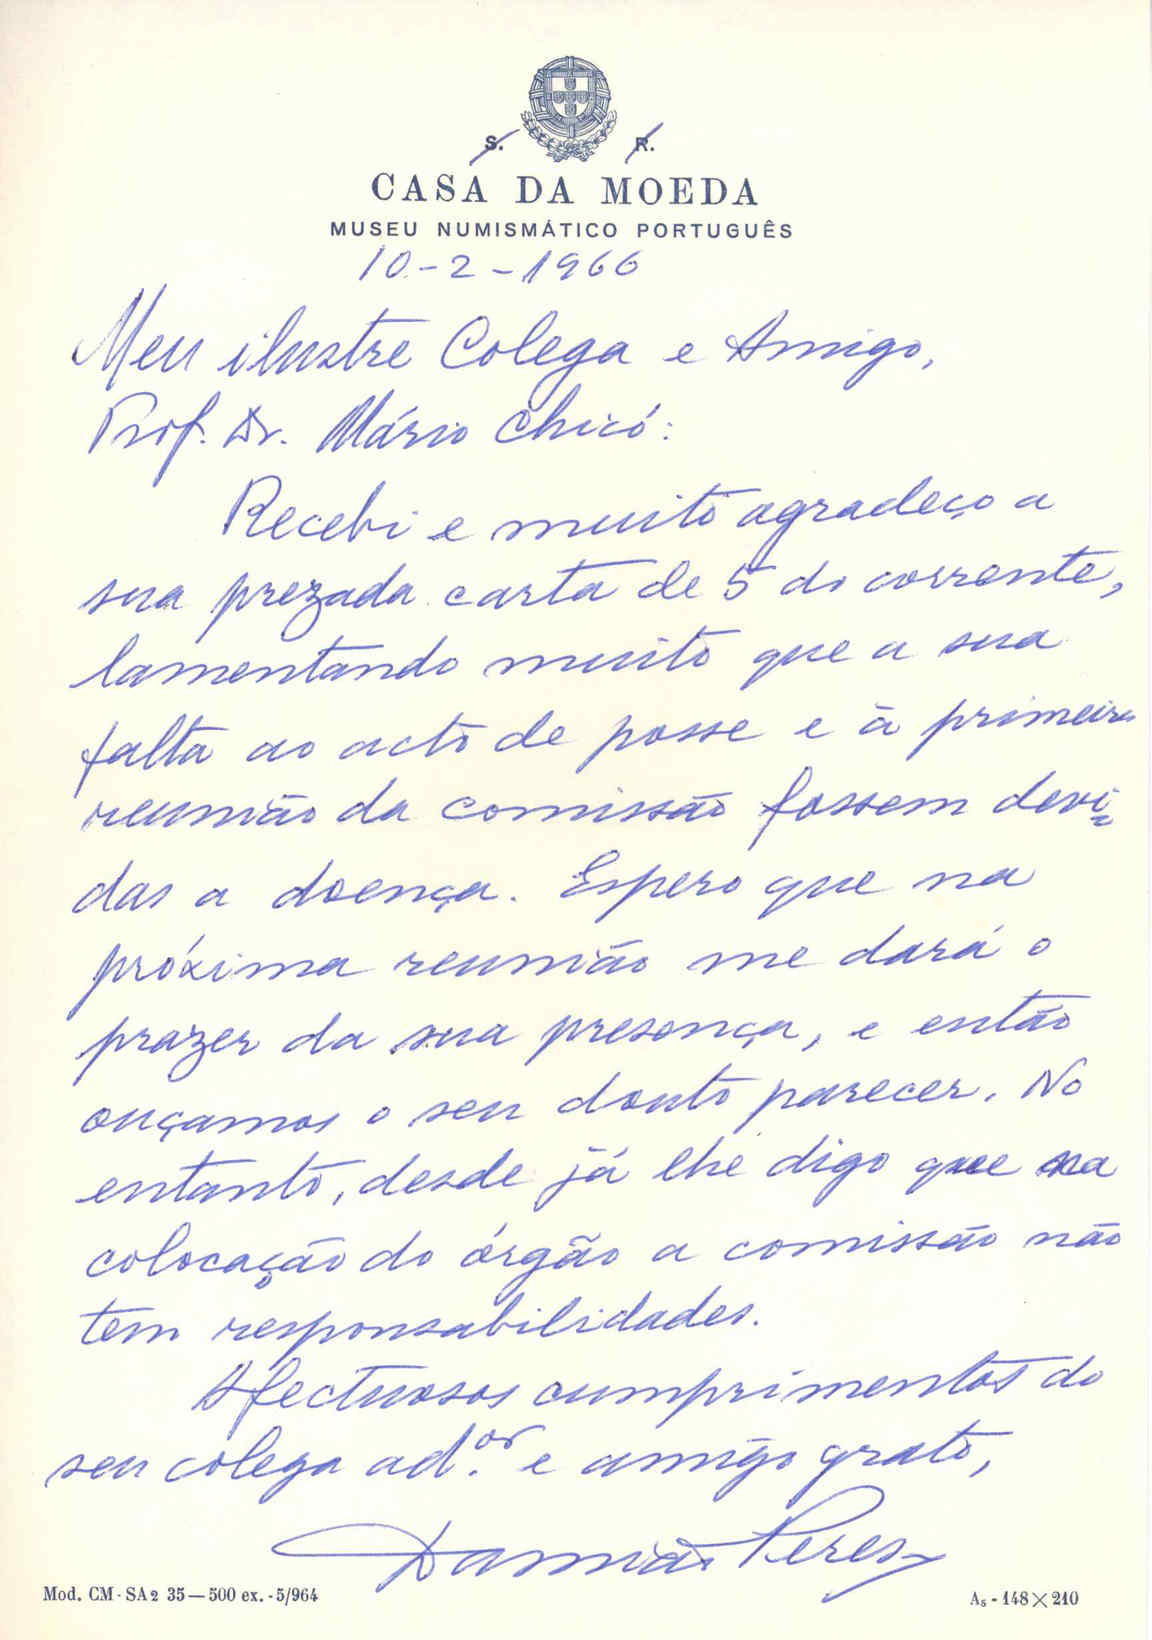 S. R.
CASA DA MOEDA
MUSEU NUMISMÁTICO PORTUGUÊS
10-2-1966
Meu ilustre Colega e Amigo,
Prof. Dr. Mário Chicó:
Recebi e muito agradeço a
sua prezada carta de 5 do corrente,
lamentando muito que a sua
falta ao acto de posse e à primeira
reunião da comissão fossem devi-
das a doença. Espero que na
próxima reunião me dará o
prazer da sua presença, e então
ouçamos o seu douto parecer. No
entanto, desde já lhe digo que na
colocação do órgão a comissão não
tem responsabilidades.
Afectuosos cumprimentos do
seu colega ad.or e amigo grato,
Damião Peres
Mod. CM - SA2 35 — 500 ex. - 5/964
A5 - 148 × 210